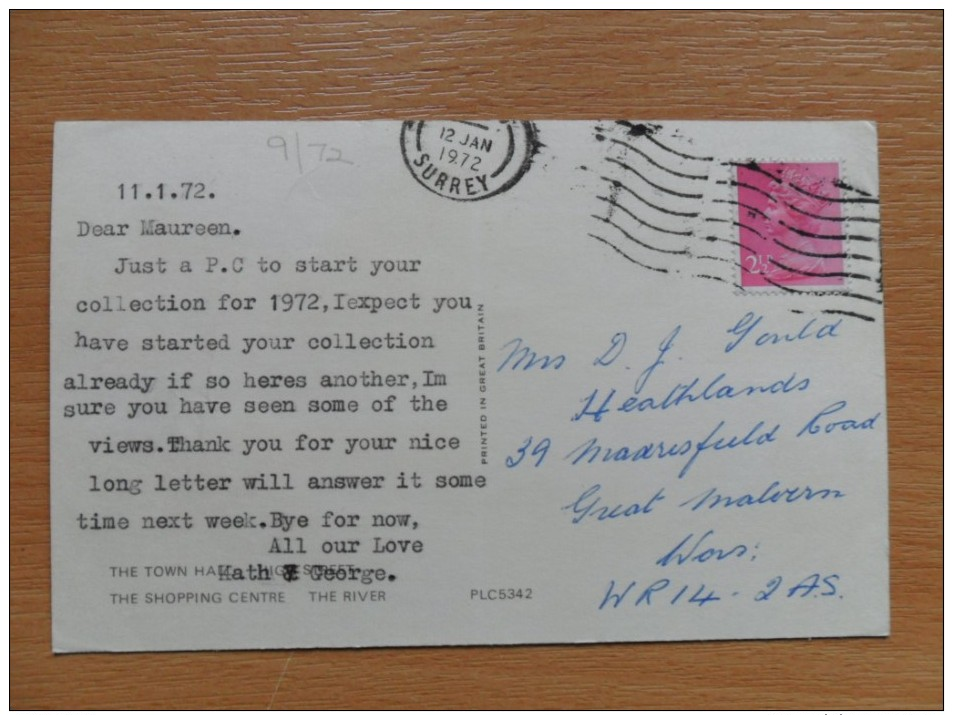 9/72
12 JAN
1972
SURREY
2½P
11.1.72.
Dear Maureen.
Just a P.C to start your
collection for 1972,Iexpect you
have started your collection
already if so heres another,Im
sure you have seen some of the
views.Thank you for your nice
long letter will answer it some
time next week.Bye for now,
All our Love
Kath & George.
THE TOWN HALL HIGH STREET
THE SHOPPING CENTRE THE RIVER
PLC5342
PRINTED IN GREAT BRITAIN
Mrs D. J. Gould
Heathlands
39 Madresfield Road
Great Malvern
Wors:
WR14-2AS.